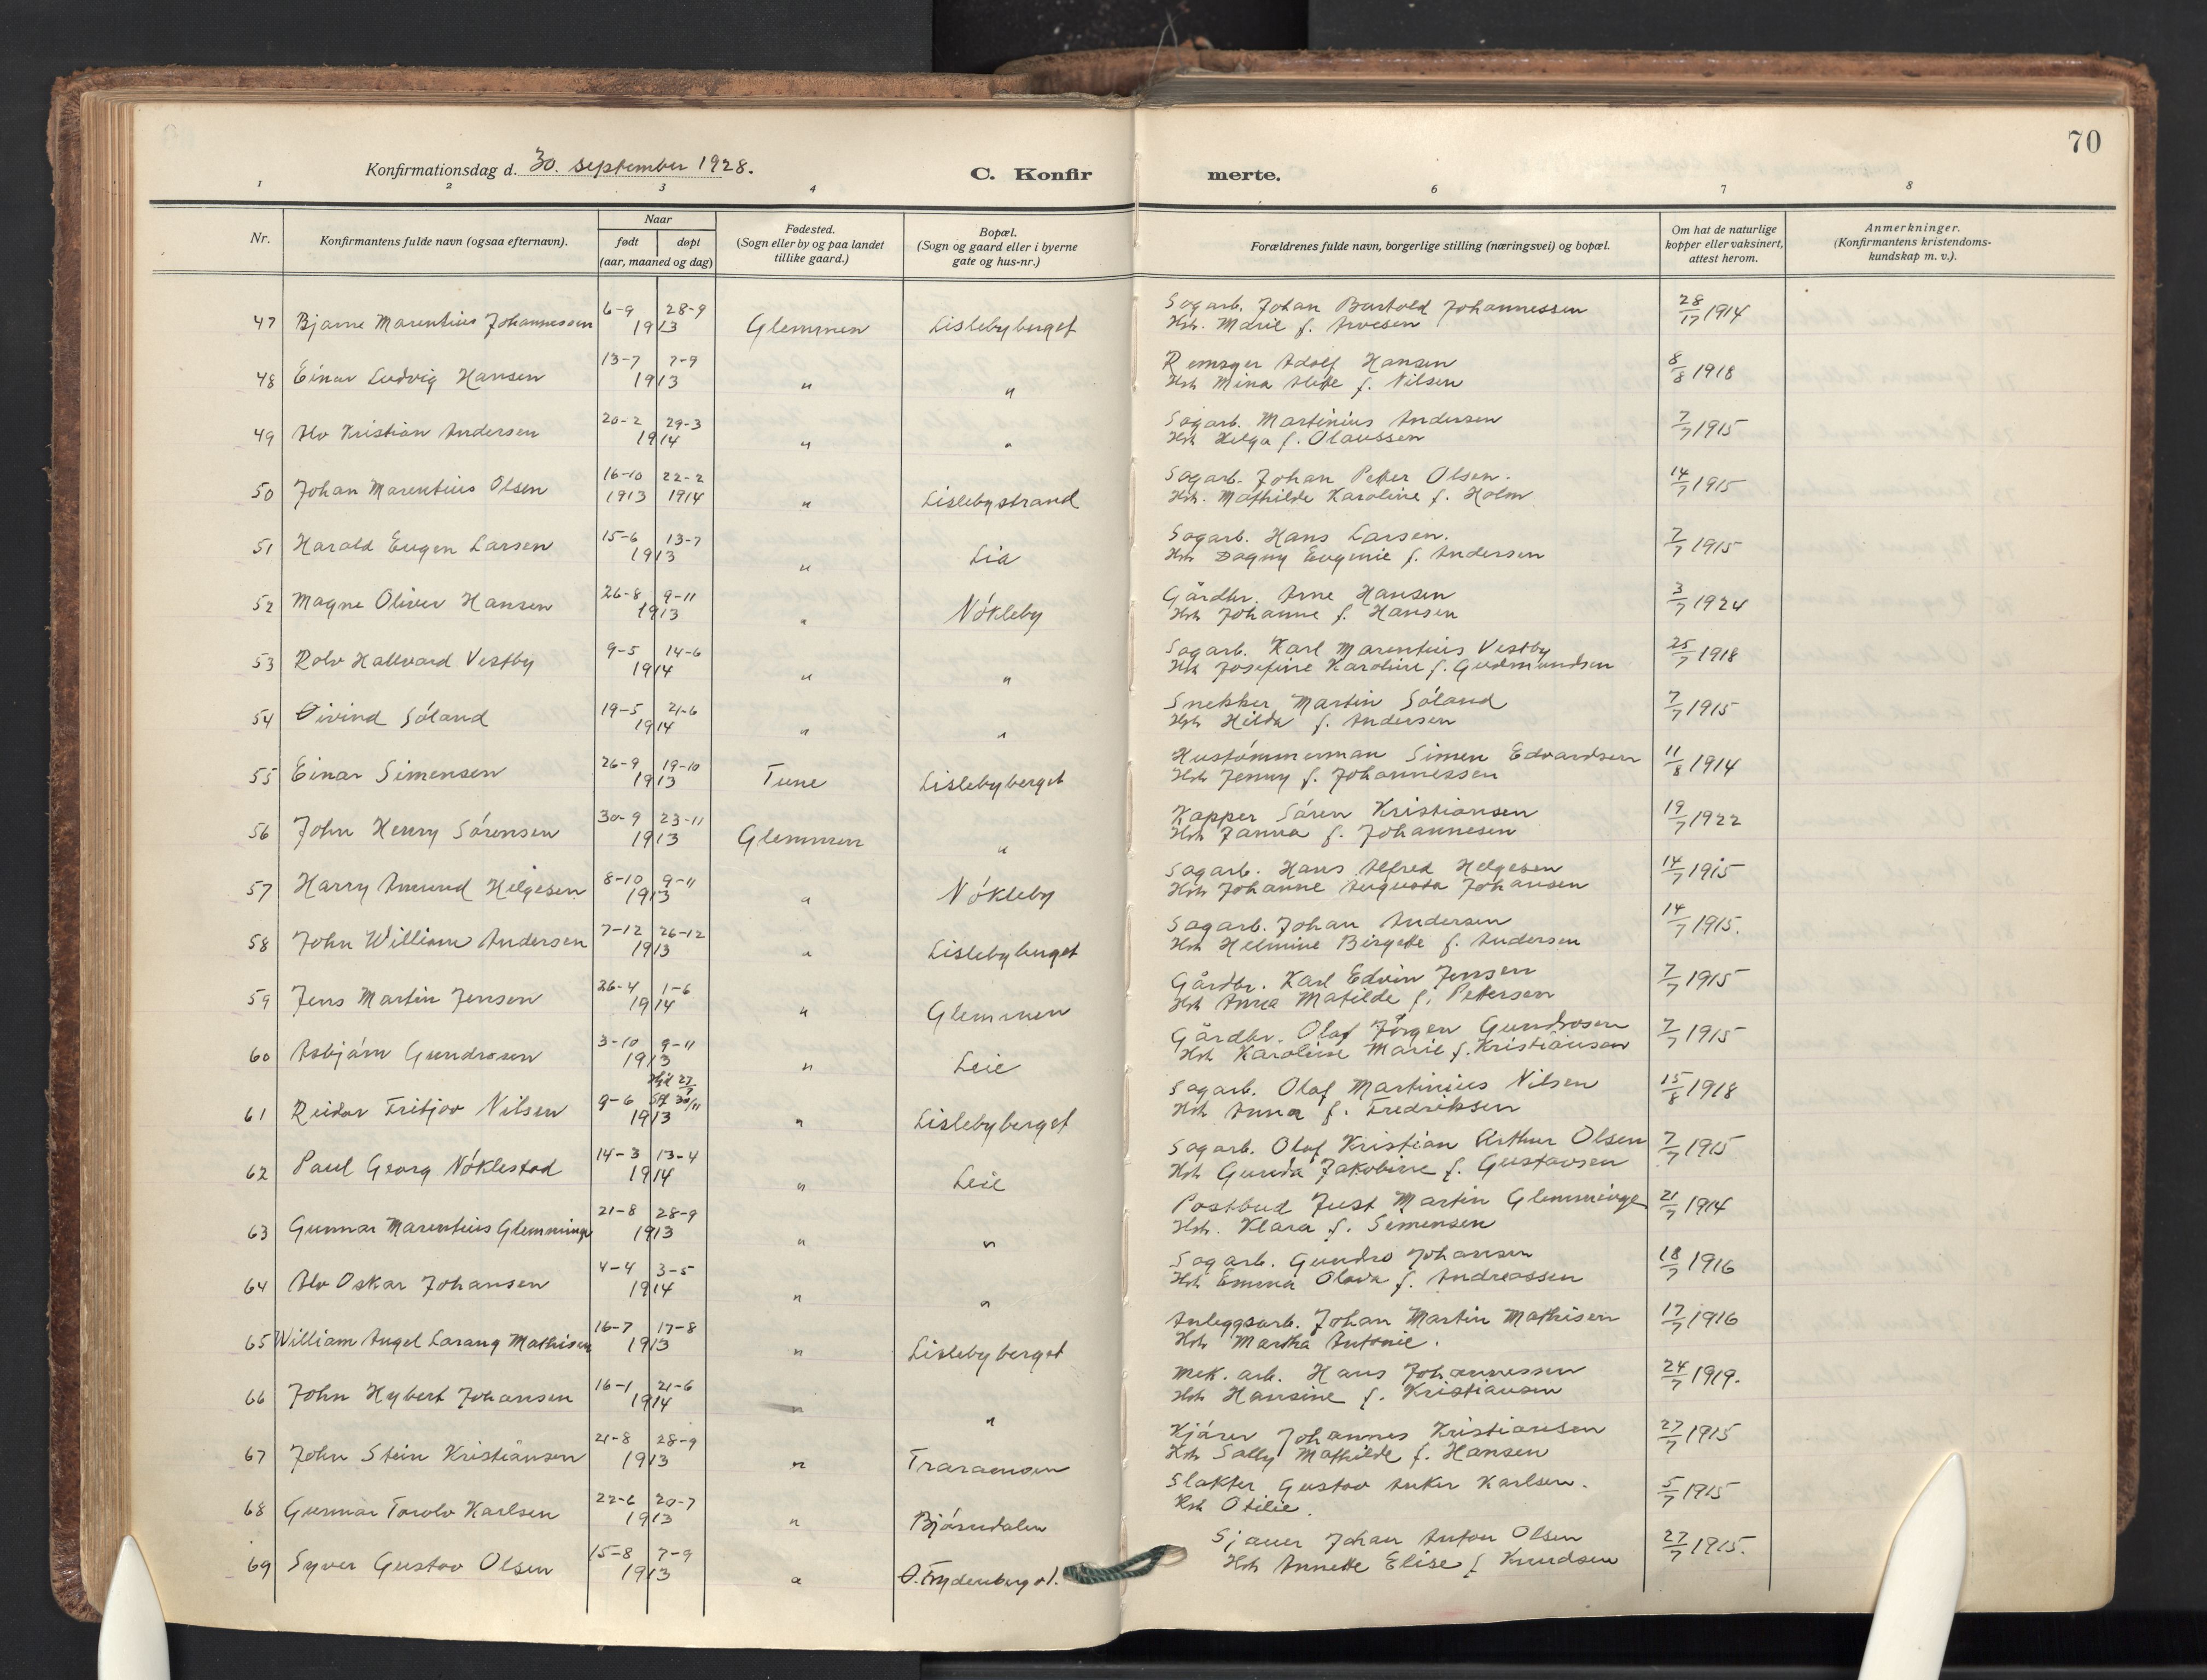 70
Konfirmationsdag d. 30. september 1928.
C. Konfirmerte.
1 2 3 4 6 7 8
Nr.
Konfirmantens fulde navn (ogsaa efternavn).
Naar
født døpt
(aar, maaned og dag)
Fødested.
(Sogn eller by og paa landet
tillike gaard.)
Bopæl.
(Sogn og gaard eller i byerne
gate og hus-nr.)
Forældrenes fulde navn, borgerlige stilling (næringsvei) og bopæl.
Om hat de naturlige
kopper eller vaksinert,
attest herom.
Anmerkninger.
(Konfirmantens kristendoms-
kundskap m. v.).
47 Bjarne Marentius Johannessen 6-9 28-9 1913 Glemmen Lislebyberget Sagarb. Johan Bartold Johannessen 28/17 1914
Hst. Marie f. Arvesen
48 Einar Ludvig Hansen 13-7 7-9 1913 " " Adolf Hansen 8/8 1918
Hst Mina f. Nilsen
49 Alv Kristian Andersen 20-2 29-3 1914 " " Sagarb. Martinius Andersen 7/7 1915
Hst Helga f. Olaussen
50 Johan Marentius Olsen 16-10 1913 22-2 1914 " Lislebystrand Sagarb. Johan Peter Olsen. 14/7 1915
Hst. Mathilde Karoline f. Holm
51 Harald Eugen Larsen 15-6 13-7 1913 " Lia Sagarb. Hans Larsen. 7/7 1915
Hst Dagny Eugenie f. Andersen
52 Magne Oliver Hansen 26-8 9-11 1913 " Nökleby Gårdbr. Arne Hansen 3/7 1924
Hst Johanne f. Hansen
53 Rolv Hallvard Vestby 9-5 14-6 1914 " " Sagarb. Karl Marentius Vestby 25/7 1918
Hst Josefine Karoline f. Gudmundsen
54 Øivind Söland 19-5 21-6 1914 " " Snekker Martin Söland 7/7 1915
Hst Hilda f. Andersen
55 Einar Simensen 26-9 19-10 1913 Tune Lislebyberget Hustömmerman Simen Edvardsen 11/8 1914
Hst Jenny f. Johannessen
56 John Henry Sörensen 30-9 23-11 1913 Glemmen " Kopper Sören Kristiansen 19/7 1922
Hst Janna f. Johannesen
57 Harry Amund Helgesen 8-10 9-11 1913 " Nökleby Sagarb. Hans Alfred Helgesen 14/7 1915
Hst Johanne Augusta Johansen
58 John William Andersen 7-12 26-12 1913 " Lislebyberget Sagarb. Johan Andersen 14/7 1915.
Hst Helmine Birgette f. Andersen
59 Jens Martin Jensen 26-4 1-6 1914 " Glemmen Gårdbr. Karl Edvin Jensen 7/7 1915
Hst Anna Matilde f. Petersen
60 Asbjörn Gundrosen 3-10 9-11 1913 " Leie Gårdbr. Olaf Jörgen Gundrosen 7/7 1915
Hst Karoline Marie f. Kristiansen
61 Reidar Fritjov Nilsen 9-6 30/11 1913 " Lislebyberget Sagarb. Olaf Martinius Nilsen 15/8 1918
Hst Anna f. Fredriksen
62 Paul Georg Nöklestad 14-3 13-4 1914 " Leie Sagarb. Olaf Kristian Arthur Olsen 7/7 1915
Hst Gunda Jakobine f. Gustavsen
63 Gunnar Marentius Glemminge 21-8 28-9 1913 " " Postbud Just Martin Glemminge 21/7 1914
Hst. Klara f. Semensen
64 Alv Oskar Johansen 4-4 3-5 1914 " " Sagarb. Gundro Johansen 18/7 1916
Hst Emma Olava f. Andreassen
65 William Angel Mathisen 16-7 17-8 1913 " Lislebyberget Anleggsarb. Johan Martin Mathisen 17/7 1916
Hst Martha Antonie.
66 John Hybert Johansen 16-1 21-6 1914 " " Mek. arb. Hans Johannessen 24/7 1919.
Hst Hansine f. Kristiansen
67 John Stein Kristiansen 21-8 28-9 1913 " Traraengen Kjörer Johannes Kristiansen 27/7 1915
Hst Sally Mathilde f. Hansen
68 Gunnar Torolv Karlsen 22-6 20-7 1913 " Björndalen Slakter Gustav Anker Karlsen. 5/7 1915
Hst Otilie.
69 Syver Gustav Olsen 15-8 7-9 1913 " Ø. Frydenberg Sjauer Johan Anton Olsen 27/7 1915.
Hst Annette Elise f Knudsen